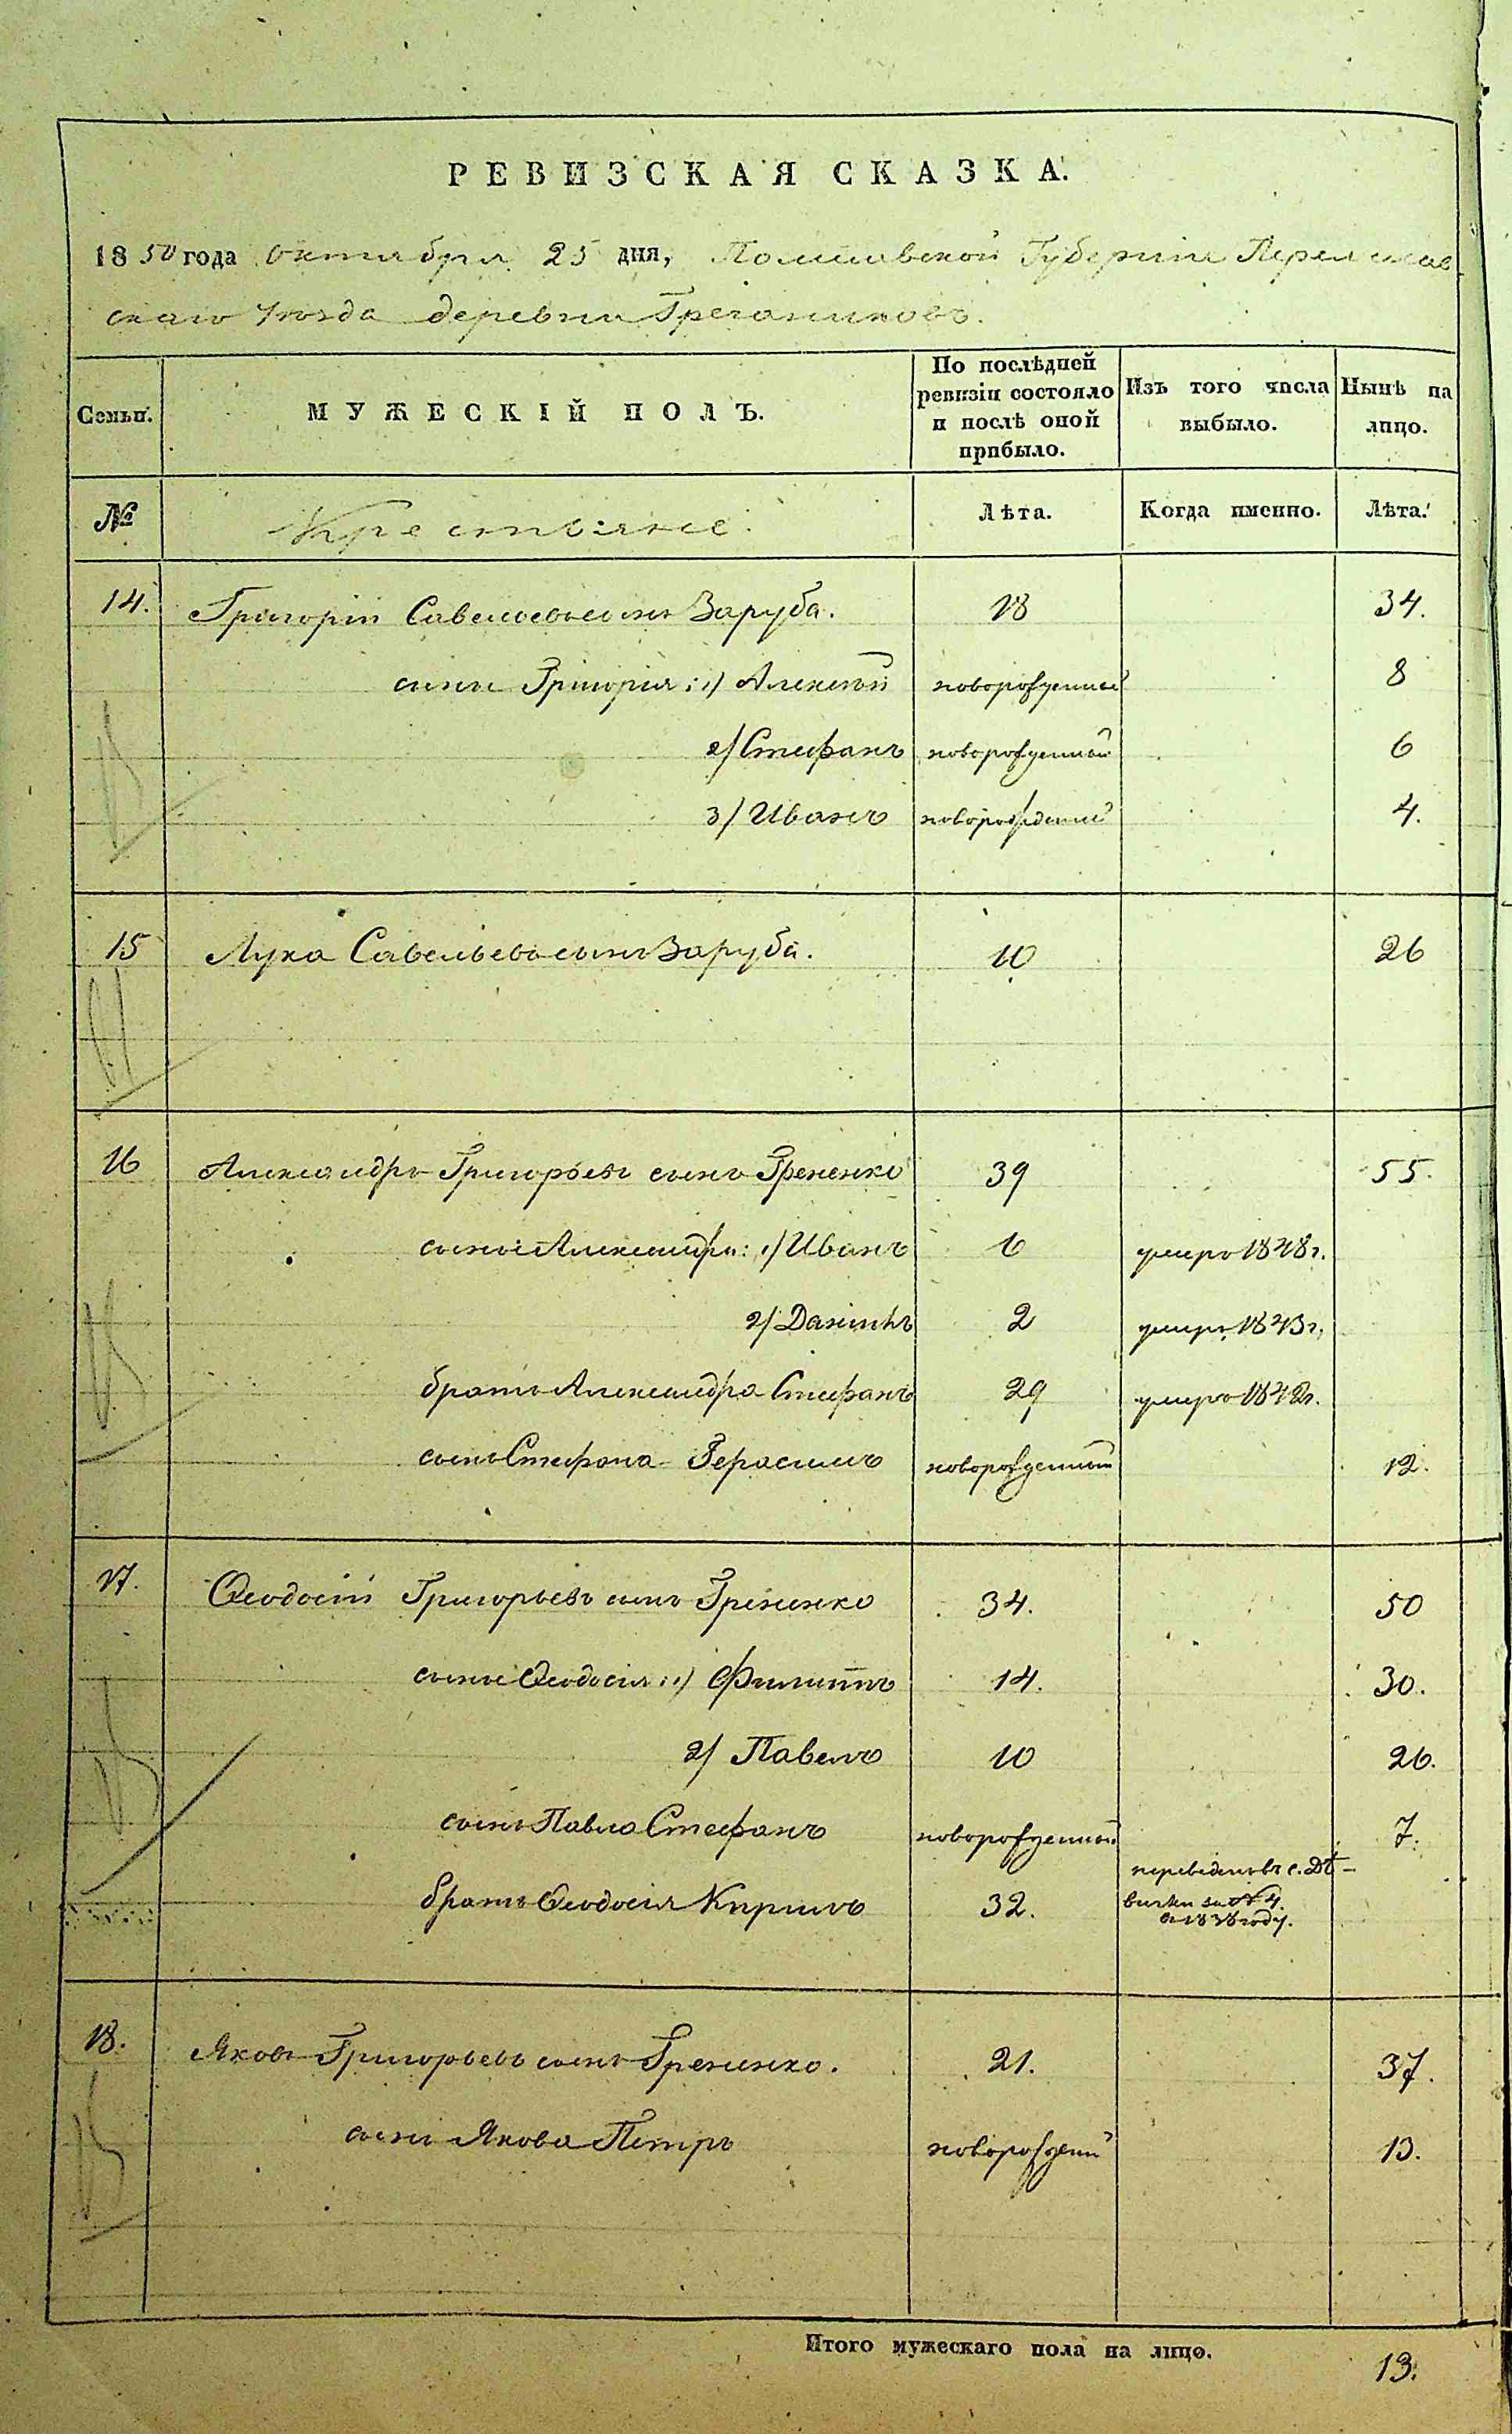 РЕВИЗСКАЯ СКАЗКА.
1850 года октября 25 дня, Полтавской Губернии Переяслав
скаго уезда деревни
Семьи. МУЖЕСКІЙ ПОЛЪ. По послѣдней ревизіи состояло и послѣ оной прибыло. Изъ того числа выбыло. Нынѣ на лицо.
№ Крестьяне. Лѣта. Когда именно. Лѣта.
14. Григорій Савельевъ сынъ Заруба. 18 34.
сыны Григорія: 1) Алексѣй новорожденный 8
2) Стефанъ новорожденный 6
3) Иванъ новорожденный 4.
15 Лука Савельевъ сынъ Заруба. 10 26
16 Александръ Григорьевъ сынъ Грененко 39 55.
сыны Александра: 1) Иванъ 6 умеръ 1848 г.
2) Даніилъ 2 умеръ 1843 г.
братъ Александра Стефанъ 29 умеръ 1842 г.
сынъ Стефана Герасимъ новорожденный 12.
17. Ѳеодосій Григорьевъ сынъ Грененко 34. 50
сыны Ѳеодосія: 1) Филиппъ 14. 30.
2) Павелъ 10 26.
сынъ Павла Стефанъ новорожденный 7.
братъ Ѳеодосія Кирилъ 32. переведенъ въ с. Дѣ-
вички за № 4.
в 1838 году.
18. Яковъ Григорьевъ сынъ Грененко. 21. 37.
сынъ Якова Петръ новорожденный 13.
Итого мужескаго пола на лицо. 13.